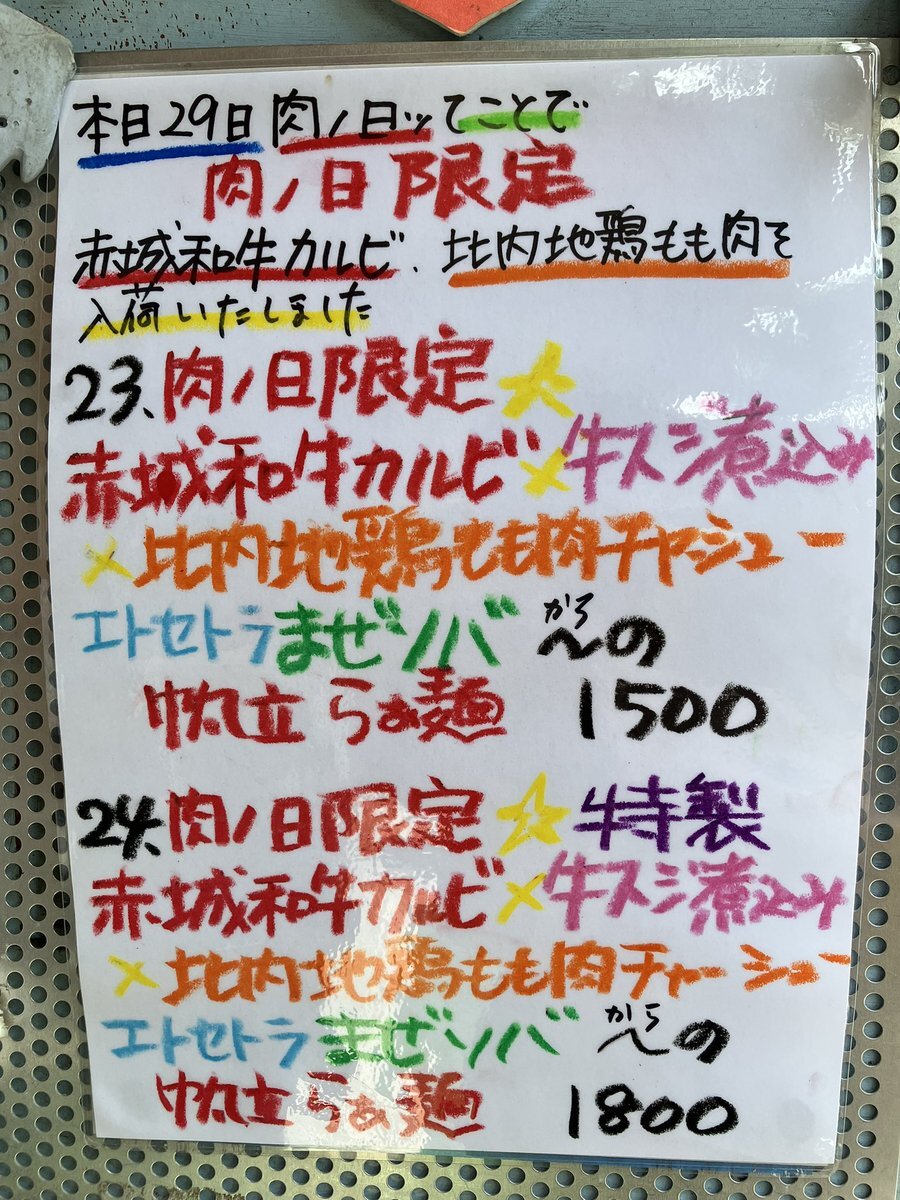 本日29日肉ノ日ッてことで
肉ノ日限定
赤城和牛カルビ、比内地鶏もも肉を
入荷いたしました
23、肉ノ日限定☆
赤城和牛カルビ×牛スジ煮込み
×比内地鶏もも肉チャーシュー
エトセトラまぜソバ〜からの
帆立らぁ麺 1500
24、肉ノ日限定☆特製
赤城和牛カルビ×牛スジ煮込み
×比内地鶏もも肉チャーシュー
エトセトラまぜソバ〜からの
帆立らぁ麺 1800